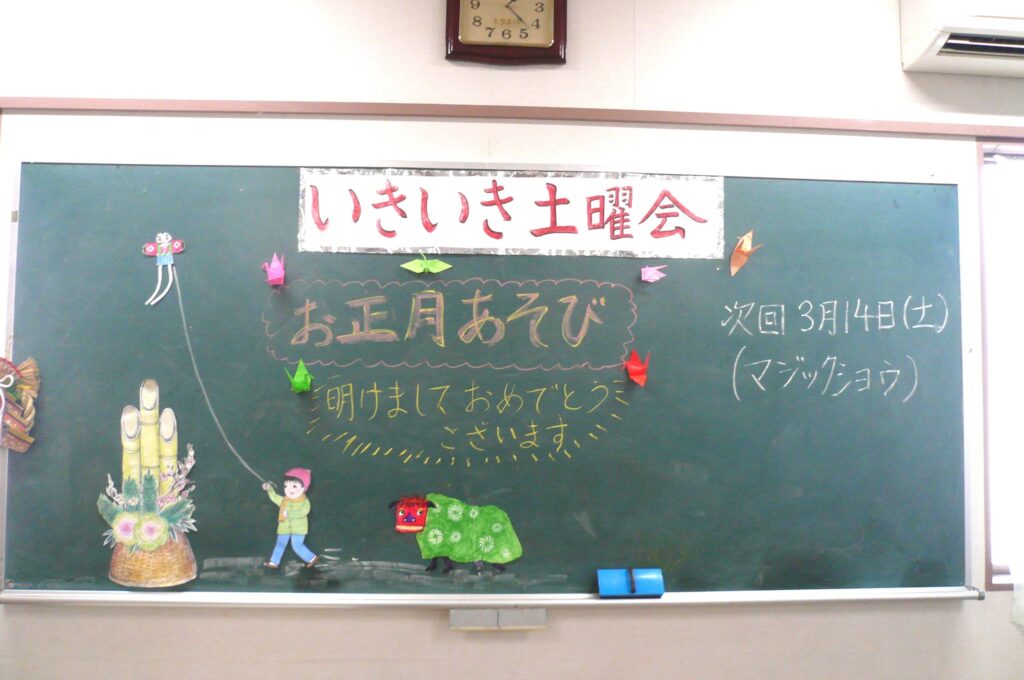 いきいき土曜会
お正月あそび
明けまして おめでとう
ございます
次回 3月14日(土)
(マジックショウ)
9 3
8 4
7 6 5